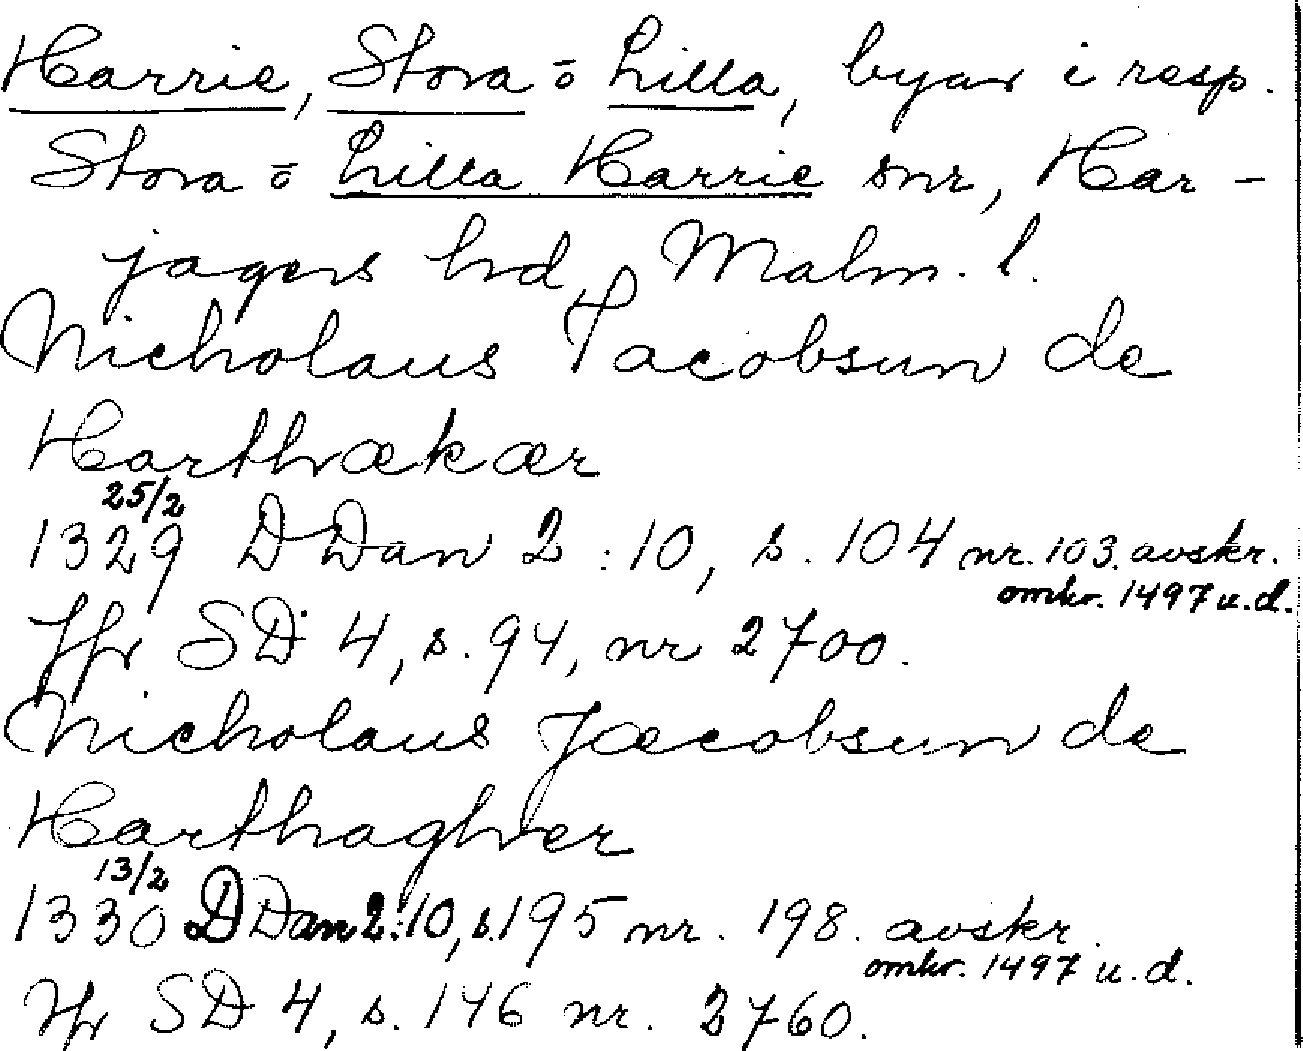 Harrie, Stora o Lilla, byar i resp.
Stora o Lilla Harrie snr, Har-
jagers hd, Malm. l.
Nicholaus Jacobsun de
Harthækær
25/2
1329 DDan 2:10, s. 104 nr. 103. avskr.
omkr. 1497 u.d.
Jfr SD 4, s. 94, nr 2700.
Nicholaus Jæcobsun de
Harthagher
13/2
1330 DDan 2:10, s. 195 nr. 198. avskr.
omkr. 1497 u.d.
Jfr SD 4, s. 146 nr. 2760.